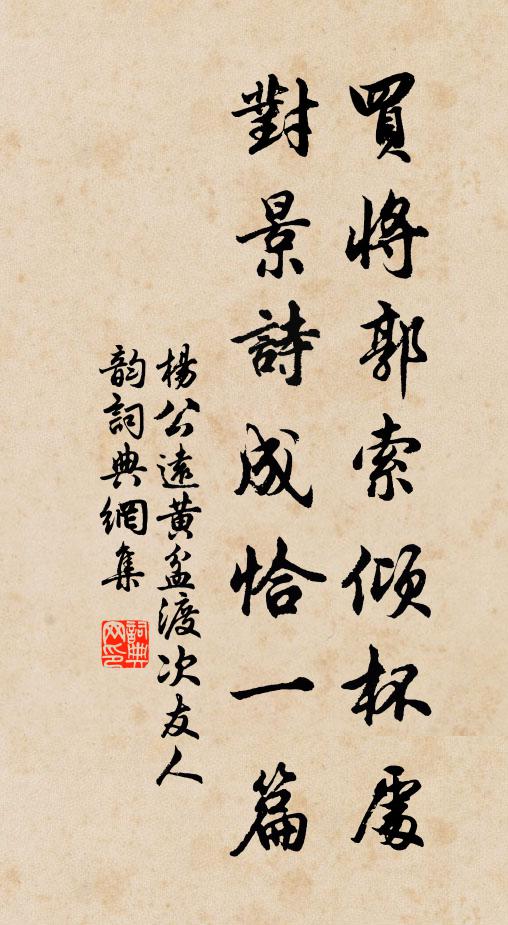 買將郭索傾杯處
對景詩成恰一篇
楊公遠黃盆渡次友人
韵詞典網集
詞典网印